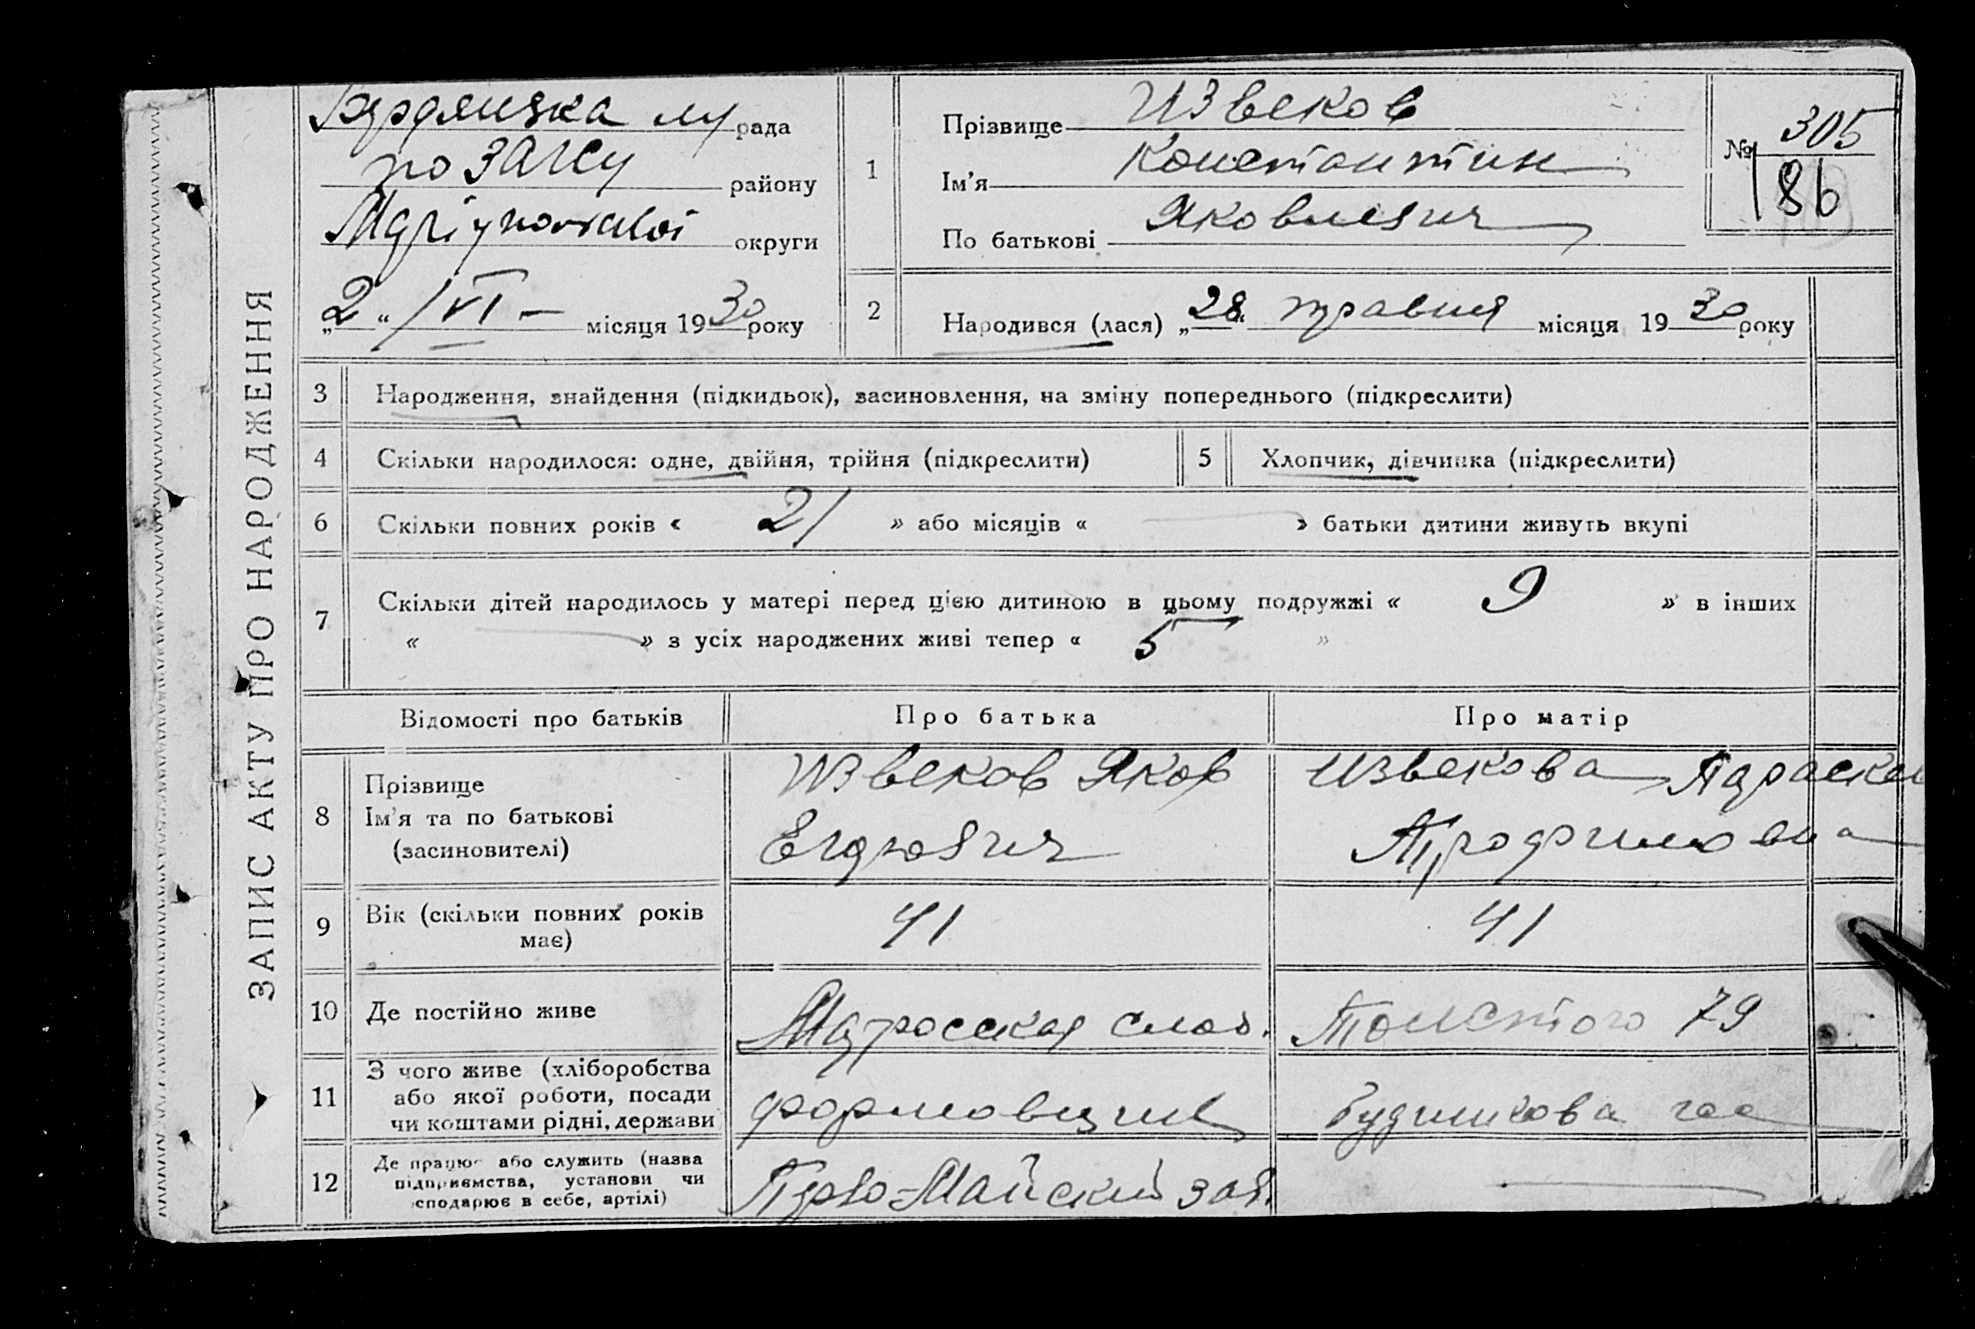 ЗАПИС АКТУ ПРО НАРОДЖЕННЯ
Бердянська рада
по ЗАГСу району
Маріупольської округи
„2“ / VI – місяця 1930 року
1
Прізвище Извеков
Ім'я Константин
По батькові Яковлевич
№ 305
186
2
Народився (лася) „28“ травня місяця 1930 року
3 Народження, знайдення (підкидьок), засиновлення, на зміну попереднього (підкреслити)
4 Скільки народилося: одне, двійня, трійня (підкреслити)
5 Хлопчик, дівчинка (підкреслити)
6 Скільки повних років « 21 » або місяців « — » батьки дитини живуть вкупі
7 Скільки дітей народилось у матері перед цією дитиною в цьому подружжі « 9 » в інших
« — » з усіх народжених живі тепер « 5 »
Відомості про батьків
Про батька
Про матір
8
Прізвище
Ім'я та по батькові
(засиновителі)
Извеков Яков
Извекова Параскев
Трофимовна
9
Вік (скільки повних років
має)
41
41
10 Де постійно живе
Матросская слоб.
Толстого 79
11
З чого живе (хліборобства
або якої роботи, посади
чи коштами рідні, держави
формовщик
12
Де працює або служить (назва
підприємства, установи чи
сподарює в себе, артілі)
Перво-Майский зав.
—